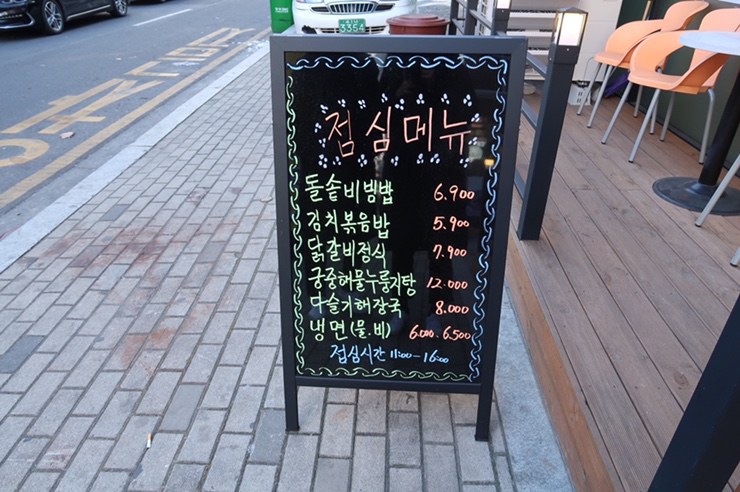 3354
점심메뉴
돌솥비빙밥 6.900
김치볶음밥 5.900
닭갈비정식 7.900
궁중해물누룽지탕 12.000
다슬기해장국 8.000
냉면(물.비) 6.000-6.500
점심시간 11:00-16:00